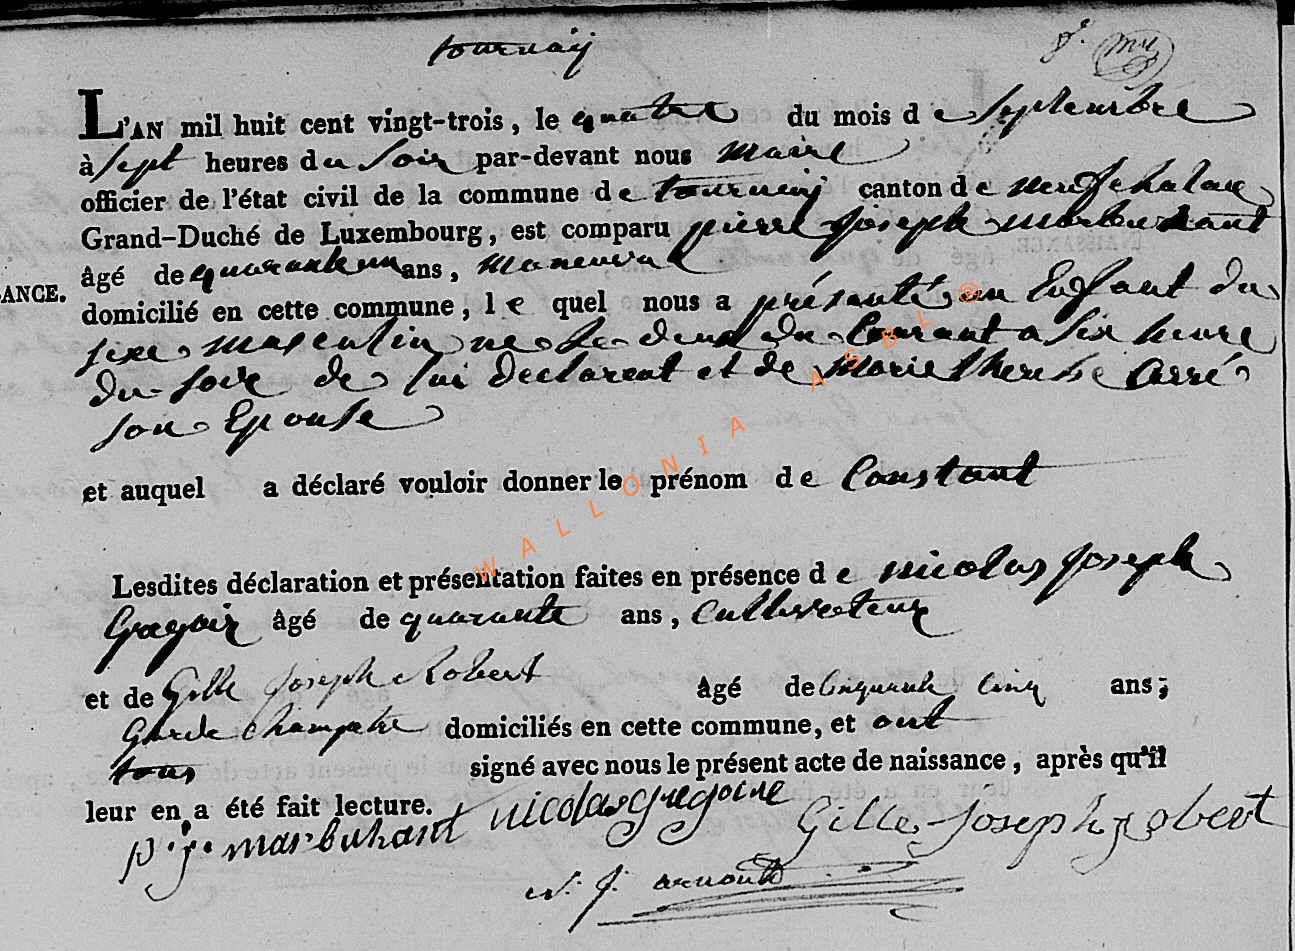 tournaij
L'AN mil huit cent vingt-trois, le quatre du mois de Septembre
à Sept heures du Soir par-devant nous maire
officier de l'état civil de la commune de tournaij canton de neufchateau
Grand-Duché de Luxembourg, est comparu pierre Joseph marbuhant
âgé de quarante un ans, maneuvre
ANCE.
domicilié en cette commune, le quel nous a présenté un Enfant du
sixe masculin ne le deux du Courant a Six heure
du soire de lui Declarent et de Marie therese Carré
son Epouse
et auquel a déclaré vouloir donner le prénom de Constant
Lesdites déclaration et présentation faites en présence de nicolas Joseph
Gregoir âgé de quarante ans, Cultivateur
et de Gille Joseph Robert âgé de Cinquante Cinq ans;
Garde Champetre domiciliés en cette commune, et ont
tous signé avec nous le présent acte de naissance, après qu'il
leur en a été fait lecture.
p. j. marbuhant nicolas gregoire Gille Joseph robert
N. J. arnould
WALLONIA ASBL ®